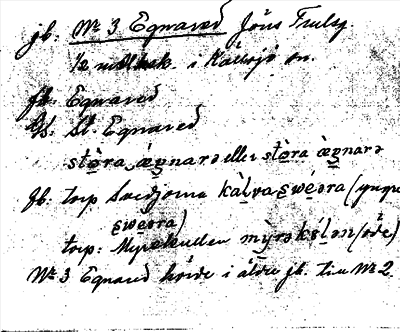 jb: № 3 Egnared Jöns Truls
1/2 mtl skk. i Källsjö sn.
jb: Egnared
St. Egnared
stǫ̀ra, æ̀ŋnarə eller stǫ̀ra æ̀ŋnarə
jb: torp Svedjorna kàlva-swéəra (yngre
swéəra)
torp: Myrekullen mỳrəkələn (öde)
№ 3 Egnared hörde i äldre jb. till № 2.